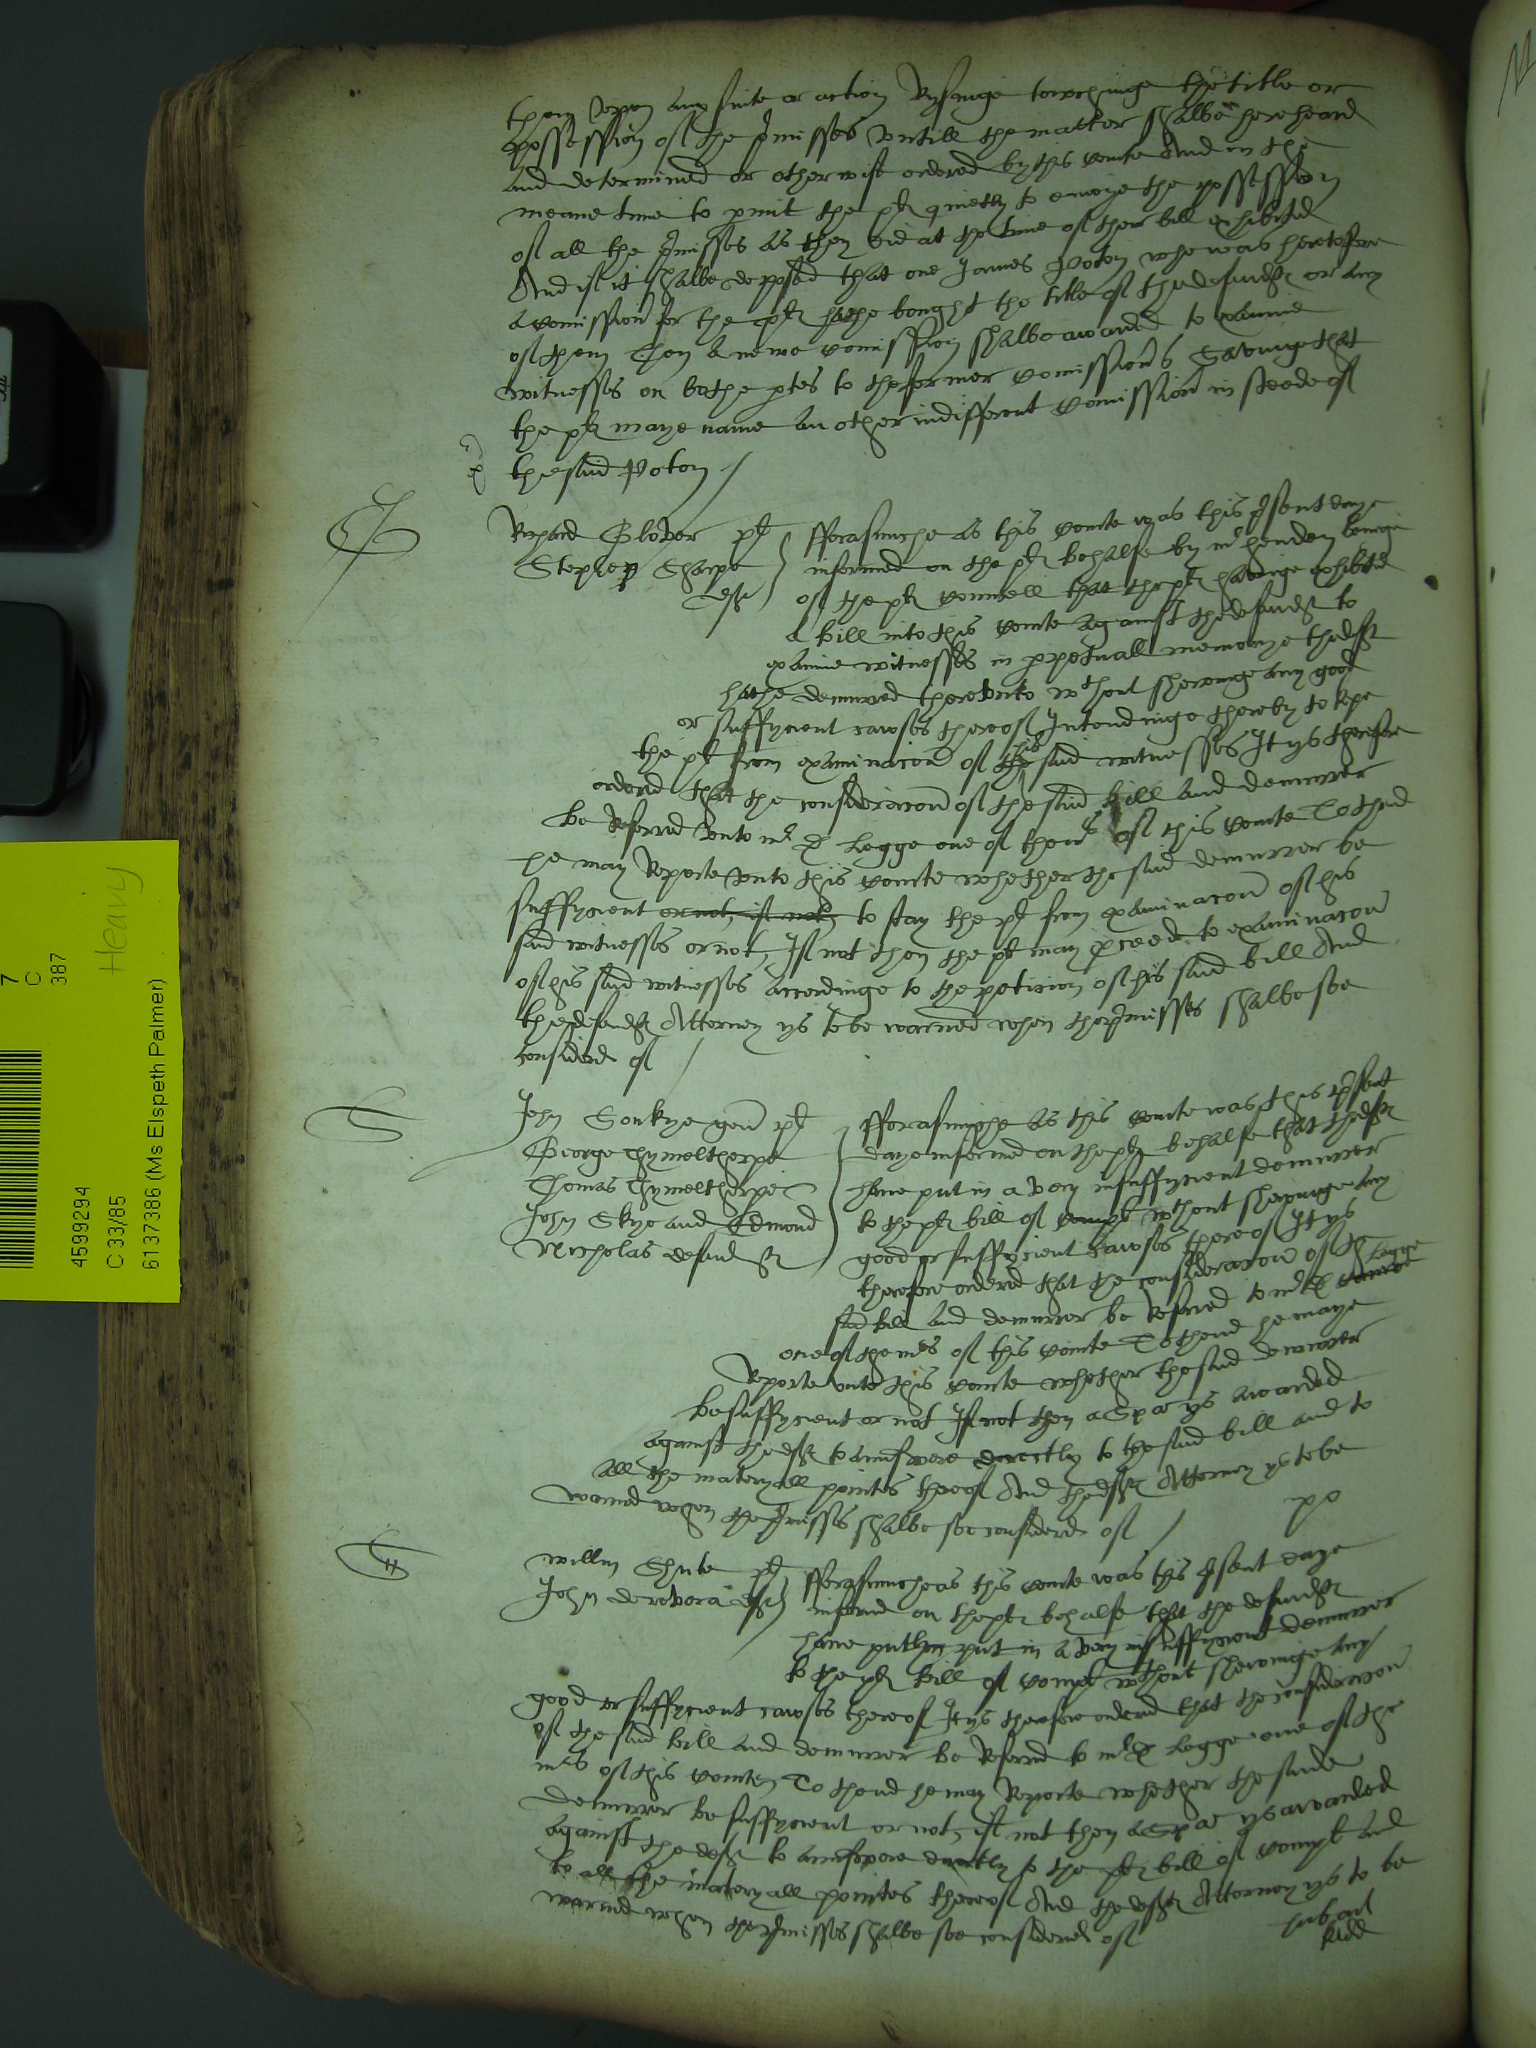 then upon any suite or action Rysinge towchinge the title or
possession of the p̃misses untill the matter shalbe here heard
and determined or otherwise ordered by this Courte And in the
meane time to p̱mit the pł quietly to enioye the possession
of all the p̃misses as they did at the time of their bill exhibited
And if it shalbe deposed that one James Poton who was heretofore
a Comissionr for the pł hathe bought the title of the defendtes or any
of them Then a newe Comission shalbe awarded to examine
witnesses on bothe p̱tes to the former Comissioners Savinge that
the pł maye name an other indifferent Comissionr in steede of
the said Poton /
Richard Glover pł
Stephen Sharpe
deft
fforasmuche as this Courte was this p̃sent daye
informed on the pł behalfe by mr hendon beinge
of the pł Councell that the pł havinge exhibited
a bill into this Courte against the defendt to
examine witnesses in p̱petuall memorye the deft
hathe demurred thereunto wthout shewinge any good
or suffycient causes thereof Intendinge thereby to kepe
the pł from examinacon of his said witnesses It ys therefore
ordered that the consideracon of the said bill and demurrer
be Referred unto mr D Legge one of the mrs of this Courte To thend
he may Reporte unto this Courte whether the said demurrer be
suffycient or not, if not, to stay the pł from examinacon of his
said witnesses or not, If not then the pł may p̱ceede to examinacon
of his said witnesses accordinge to the peticion of his said bill And
the defendtes Attorney ys to be warned when the p̃misses shalbe soe
considered of /
John Sonkye gent pł
George Thymelthorpe
Thomas Thymelthorpe
John Skye and Edmond
Nicholas defendtes
fforasmuche as this Courte was this p̃sent
daye informed on the pł behalfe that the deftes
have put in a very insuffycient demurrer
to the pł bill of Compł wthout shewinge any
good or suffycient causes thereof It ys
therefore ordered that the consideracon of the
said bill and demurrer be Referred to mr D Legge
one of the mrs of this Courte To thend he maye
Reporte unto this Courte whether the said demurrer
be suffycient or not If not then a Spa ys awarded
against the deftes to aunswere directly to the said bill and to
all the materyall pointes thereof And the deftes Attorney ys to be
warned when the p̃misses shalbe soe considered of /
po
Willm Shute pł
John Derovora deft
fforasmuche as this Courte was this p̃sent daye
informed on the pł behalfe that the defendtes
have put in a very insuffycient demurrer
to the pł bill of Compł wthout shewinge any
good or suffycient causes thereof It ys therefore ordered that the consideracon
of the said bill and demurrer be Referred to mr D Legge one of the
mrs of this Courte, To thend he may Reporte whether the saide
demurrer be suffycient or not, if not then a Spa ys awarded
against the deft to aunswere directly to the pł bill of Compł and
to all the materyall pointes thereof And the deftes Attorney ys to be
warned when the p̃misses shalbe soe considered of
hubart
kidd
7
C
387
Heavy
4599294
C 33/85
6137386 (Ms Elspeth Palmer)